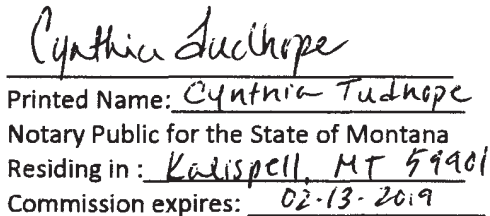 Cynthia Tudhope
Printed Name: Cynthia Tudhope
Notary Public for the State of Montana
Residing in : Kalispell, MT 59901
Commission expires: 02-13-2019